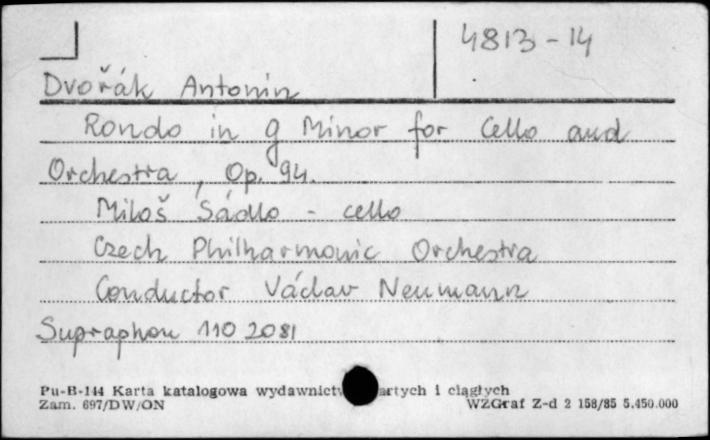 4813-14
Dvořák Antonin
Rondo in g Minor for Cello and
Orchestra, Op. 94.
Miloš Sádlo - cello
Czech Philharmonic Orchestra
Conductor Václav Neumann
Supraphon 110 2081
Pu-B-144 Karta katalogowa wydawnictw artych i ciągłych
Zam. 697/DW/ON WZGraf Z-d 2 158/85 5.450.000